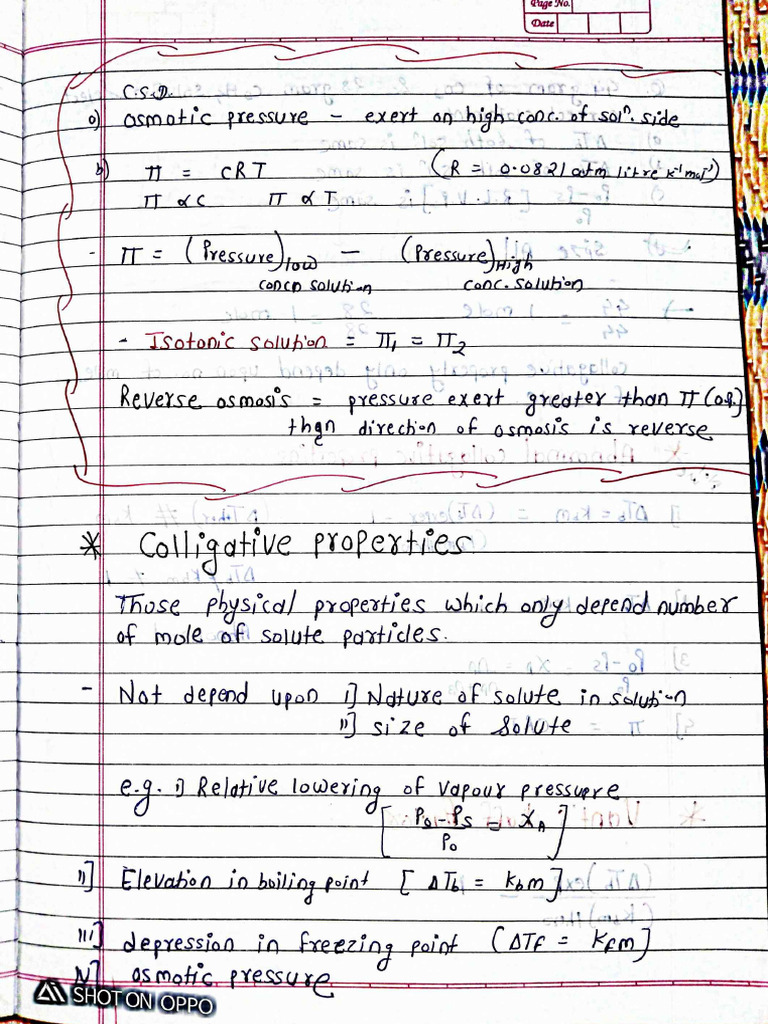 Page No.
Date
C.S.D.
a) osmotic pressure - exert on high conc. of solⁿ. side
b) π = CRT (R = 0.0821 atm litre k⁻¹ mol⁻¹)
π ∝ C π ∝ T
- π = (Pressure)low concn solution - (Pressure)High conc. solution
- Isotonic solution = π₁ = π₂
Reverse osmosis = pressure exert greater than π (o.p.)
then direction of osmosis is reverse
* Colligative properties
Those physical properties which only depend number
of mole of solute particles.
- Not depend upon i] Nature of solute in solution
ii] size of solute
e.g. i) Relative lowering of vapour pressure
[P₀-Ps/P₀ = XA]
ii] Elevation in boiling point [ΔTb = kbm]
iii] depression in freezing point (ΔTf = Kfm]
iv] osmotic pressure
SHOT ON OPPO